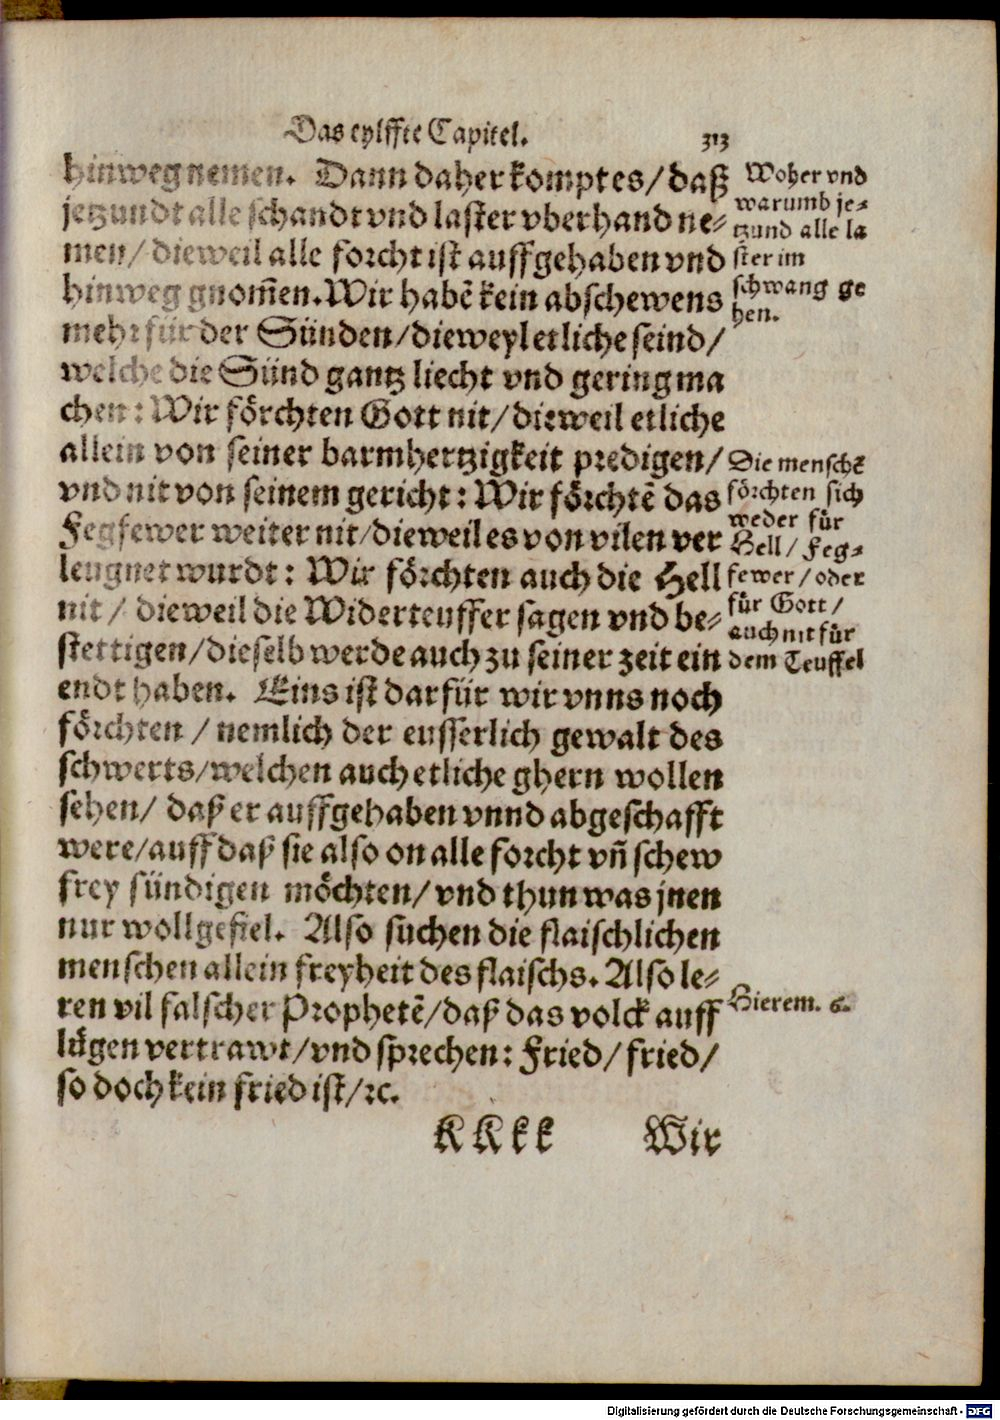 Das eylffte Capitel. 313
hinweg nemen. Dann daher kompt es/ daß
jetzundt alle schandt vnd laster vberhand ne-
men/ dieweil alle forcht ist auffgehaben vnd
hinweg gnom̃en. Wir habẽ kein abschewens
mehr für der Sünden/ dieweyl etliche seind/
welche die Sünd gantz liecht vnd gering ma
chen: Wir förchten Gott nit/ dieweil etliche
allein von seiner barmhertzigkeit predigen/
vnd nit von seinem gericht: Wir förchtẽ das
Fegfewer weiter nit/ dieweil es von vilen ver
leugnet wurdt: Wir förchten auch die Hell
nit/ dieweil die Widerteuffer sagen vnd be-
stettigen/ dieselb werde auch zu seiner zeit ein
endt haben. Eins ist darfür wir vnns noch
förchten/ nemlich der eusserlich gewalt des
schwerts/ welchen auch etliche ghern wollen
sehen/ daß er auffgehaben vnnd abgeschafft
were/ auff daß sie also on alle forcht vñ schew
frey sündigen möchten/ vnd thun was jnen
nur wollgefiel. Also suchen die flaischlichen
menschen allein freyheit des flaischs. Also le-
ren vil falscher Prophetẽ/ daß das volck auff
lügen vertrawt/ vnd sprechen: Fried/ fried/
so doch kein fried ist/ ꝛc.
KKkk Wir
Woher vnd
warumb je-
tzund alle la
ster im
schwang ge
hen.
Die menschẽ
förchten sich
weder für
Hell/ Feg-
fewer/ oder
für Gott/
auch nit für
dem Teuffel
Hierem. 6.
Digitalisierung gefördert durch die Deutsche Forschungsgemeinschaft - DFG